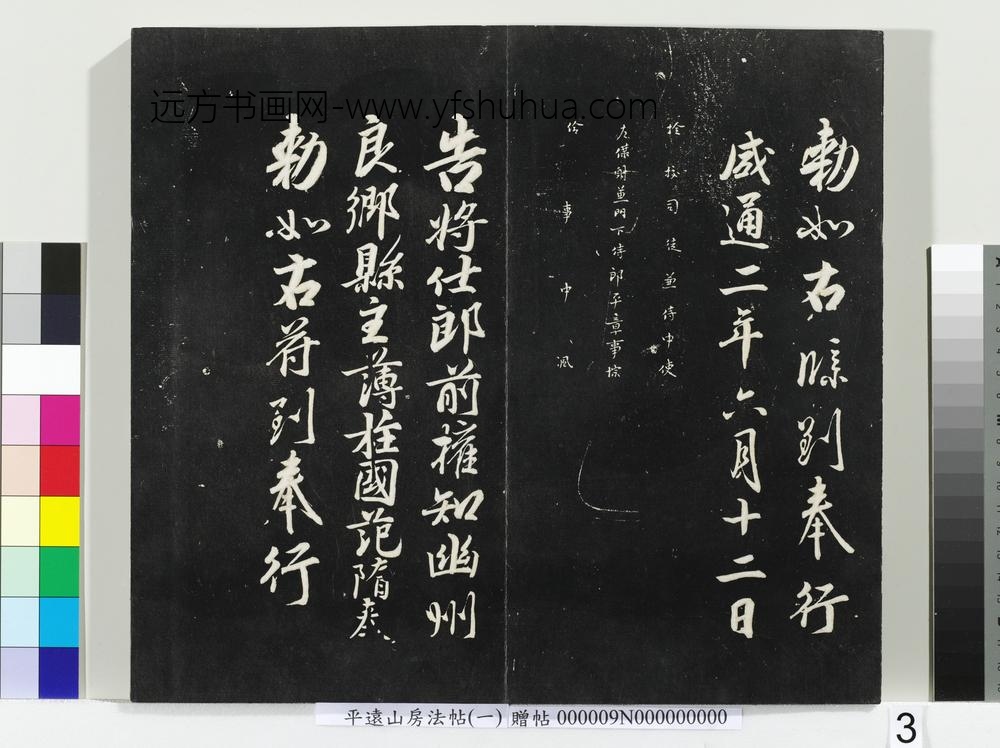 远方书画网-www.yfshuhua.com
勅如右牒到奉行
咸通二年六月十二日
檢校司徒兼侍中使
左僕射兼門下侍郎平章事悰
給事中渢
告將仕郎前權知幽州
良鄉縣主薄柱國范隋奉
勅如右符到奉行
平遠山房法帖(一) 贈帖 000009N000000000
3